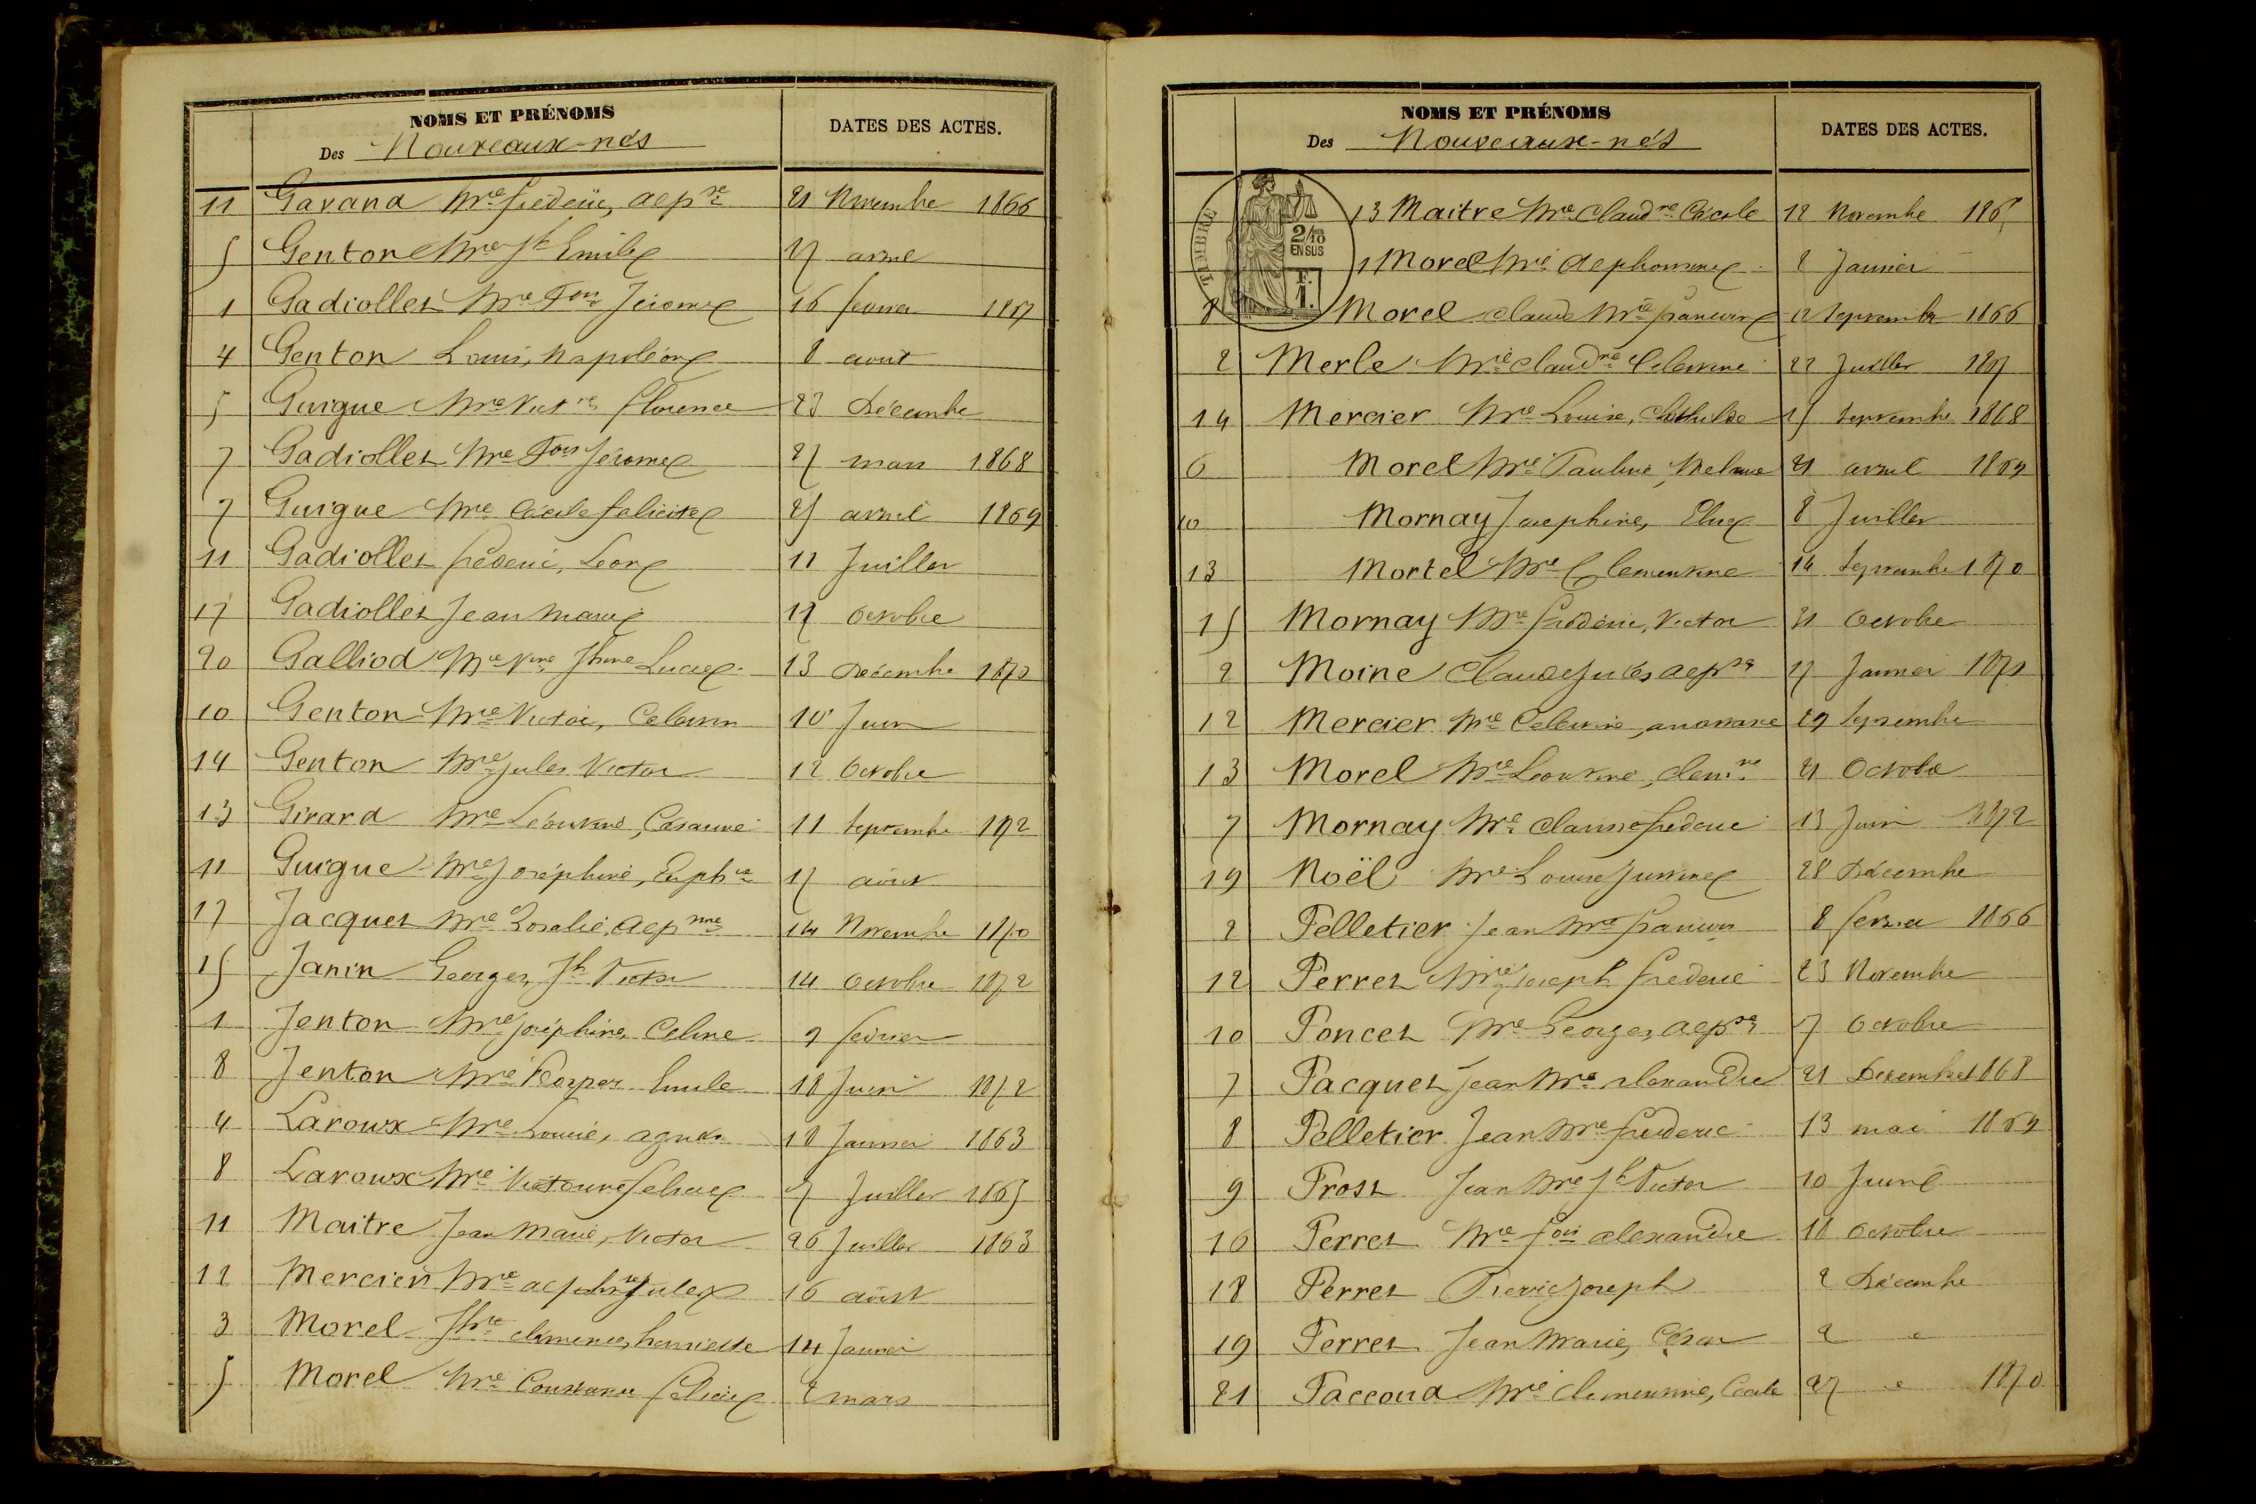 NOMS ET PRÉNOMS
Des Nouveaux-nés
DATES DES ACTES.
11 Gavand Mre frédéric, 21 Novembre 1866
5 Genton Mre Jh Emile 27 avril
1 Gadiollet Mre Fois Jérome 16 février 1867
4 Genton Louis, Napoléon 8 aout
5 Guigue Mre Florence 23 Décembre
7 Gadiollet Mre Fois Jérome 27 mars 1868
7 Guigue Mre Cécile félicité 25 avril 1869
11 Gadiollet fréderic, Leon 11 Juillet
17 Gadiollet Jean Marie 17 Octobre
20 Galliod Mie Lucie 13 Décembre 1870
10 Genton Mre Victor, Célestin 10 Juin
14 Genton Mre Jules Victor 12 Octobre
13 Girard Mre Léontine, Césarine 11 septembre 1872
11 Guigue Mre Joséphine, 17 août
17 Jacquet Mre Rosalie, 14 Novembre 1870
15 Janin Georges, Jh Victor 14 Octobre 1872
1 Jenton Mre Joséphine, Celine 9 février
8 Jenton Mre Prosper Emile 18 Juin 1872
4 Laroux Mre Louise, agnès 18 Janvier 1863
8 Laroux Mre Victorine félicie 7 Juillet 1865
11 Maitre Jean Marie, Victor 26 Juillet 1863
12 Mercier Mre Jules 16 août
3 Morel clémence, henriette 14 Janvier
5 Morel Mre Constance félicie 2 mars
NOMS ET PRÉNOMS
Des Nouveaux-nés
DATES DES ACTES.
TIMBRE
2/10 EN SUS
F. 1.
13 Maitre Mre Claudne Cécile 12 Novembre 1865
1 Morel Mre Alephonsine 2 Janvier
8 Morel Claude Mre francois 12 Septembre 1866
2 Merle Mre Claudne Celestine 22 Juillet 1867
14 Mercier Mre Louise, Clothilde 15 septembre 1868
6 Morel Mre Pauline, Melanie 21 avril 1869
10 Mornay Josephine, Elise 8 Juillet
13 Mortel Mre Clementine 14 septembre 1870
15 Mornay Mre fréderic, Victor 21 Octobre
2 Moine Claude Jules 17 Janvier 1871
12 Mercier Mre Celestine, anastasie 29 septembre
13 Morel Mre Leontine, clemne 21 Octobre
7 Mornay Mre Claude fréderic 13 Juin 1872
19 Noël Mre Louise Justine 28 Décembre
2 Pelletier Jean Mre francois 8 fevrier 1866
12 Perret Mre Joseph fréderic 23 Novembre
10 Poncet Mre Georges, 7 Octobre
7 Pacquet Jean Mre alexandre 21 Décembre 1868
8 Pelletier Jean Mre fréderic 13 mai 1869
9 Prost Jean Mre Jh Victor 10 Juin
16 Perret Mre fois alexandre 18 Octobre
18 Perret Pierre Joseph 2 Décembre
19 Perret Jean Marie, César 2 "
21 Paccoud Mre Clementine, Cecile 27 " 1870